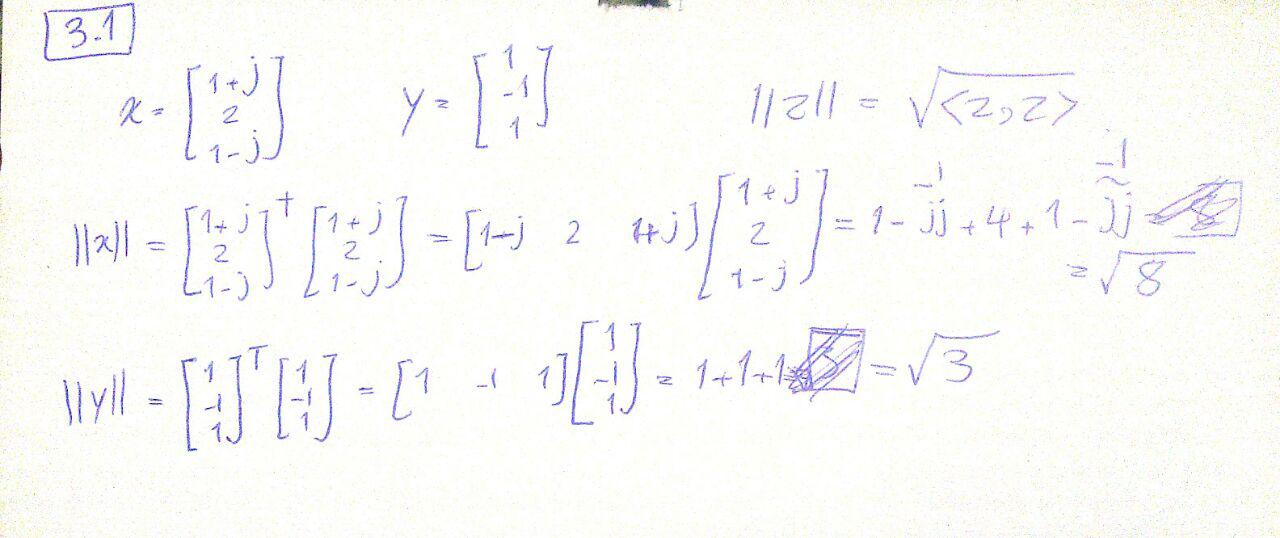 3-1
x = [1+j 2 1-j] y = [1 -1 1] ||z|| = √<z,z>
||x|| = [1+j 2 1-j]† [1+j 2 1-j] = [1-j 2 1+j] [1+j 2 1-j] = 1 - jj + 4 + 1 - jj
-1 -1
= √8
||y|| = [1 -1 1]ᵀ [1 -1 1] = [1 -1 1] [1 -1 1] = 1+1+1 = √3